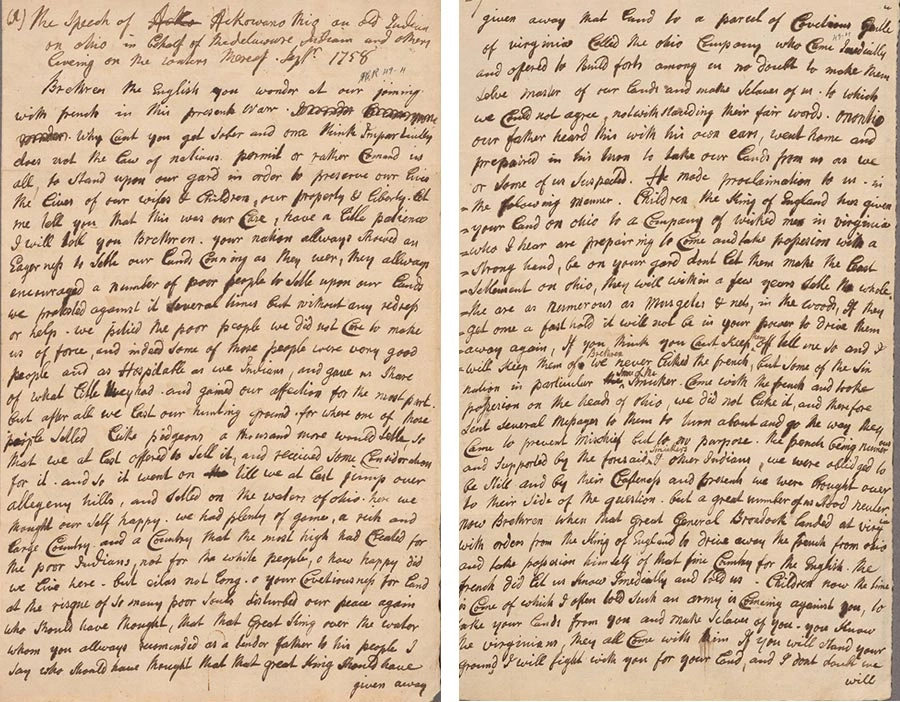 (1) The Speech of Ackowanothio an old Indian
on ohio in behalf of the delaware Indians and others
living on the waters thereof. Sept. 1758
Brethren the English you wonder at our joining
with french in this present War.
Why Cant you get Sober and once think Impartiently
does not the Law of nations permit or rather Comand us
all, to Stand upon our gard in order to preserve our Lives
the Lives of our wifes & Children, our property & Liberty. Let
me tell you that this was our Case, have a Litle patience
I will tell you Brethren. your nation allways Showed an
Eagerness to Setle our Lands Cunning as they wer, they allways
encouraged a number of poor people to Setle upon our Lands
we protested against it Several times but without any redress
or help. we pitied the poor people we did not Care to make
us of force, and indeed Some of those people were very good
people and as Hospitable as we Indians, and gave us Share
of what Litle they had. and gained our affection for the most part.
but after all we Lost our hunting ground. for where one of those
people Setled Like pidgeons, a thousand more would Setle So
that we at Last offered to Sell it, and received Some Consideration
for it. and So it went on till we at Last jump over
allegeny hills, and Setled on the waters of ohio. here we
thought our Self happy. we had plenty of game, a rich and
large Country and a Country that the most high had Created for
the poor Indians, not for the white people, o how happy did
we Live here. but alas not long. o your Covetiousness for Land
at the risque of So many poor Souls disturbed our peace again
who should have thought, that that Great King over the water
whom you allways recomended as a tender father to his people I
say who should have thought that that great King Should have
given away
given away that Land to a parcel of Covetious
of virginia Called the ohio Company who Came Imediatly
and offered to build forts among us no doubt to make them
Selve master of our Lands and make Slaves of us. to which
we Could not agree, notwithstanding their fair words. onontio
our father heard this with his own ears, went home and
prepaired in his turn to take our Lands from us as we
or Some of us Suspected. He made proclamation to us. in
the following manner. Children the King of England has given
your Land on ohio to a Company of wicked men in virginia
who I hear are prepairing to Come and take possesion with a
Strong hand, be on your gard dont let them make the Least
Setlement on ohio, they will within a few years Setle the whole.
the are as numerous as Musqetes & in the woods, If they
get once a fast hold it will not be in your power to drive them
away again, If you think you Cant keep them off tell me So and I
will keep them off. Brethren we never Liked the french, but Some of the Six
nation in particular Some of the Came with the french and tooke
possesion on the heads of ohio, we did not Like it, and therefore
Sent Several Messages to them to turn about and go the way they
Came to prevent Mischief but to no purpose. the french being numerous
and Supported by the foresaid & other Indians, we were obliged to
be Still and by their Craftiness and presents we were brought over
to their Side of the question. but a great number of us Stood neuter.
Now Brethren when that great General Bradock landed at virginia
with orders from the King of England to drive away the french from ohio
and take possesion himself of that fine Country for the English. the
french did let us know Imediatly and told us. Children now the time
is Come of which I often told Such an army is Coming against you, to
take your Lands from you and make Slaves of you. you Know
the virginians, they all Come with him If you will Stand your
ground, I will fight with you for your Land, and I dont doubt we
will